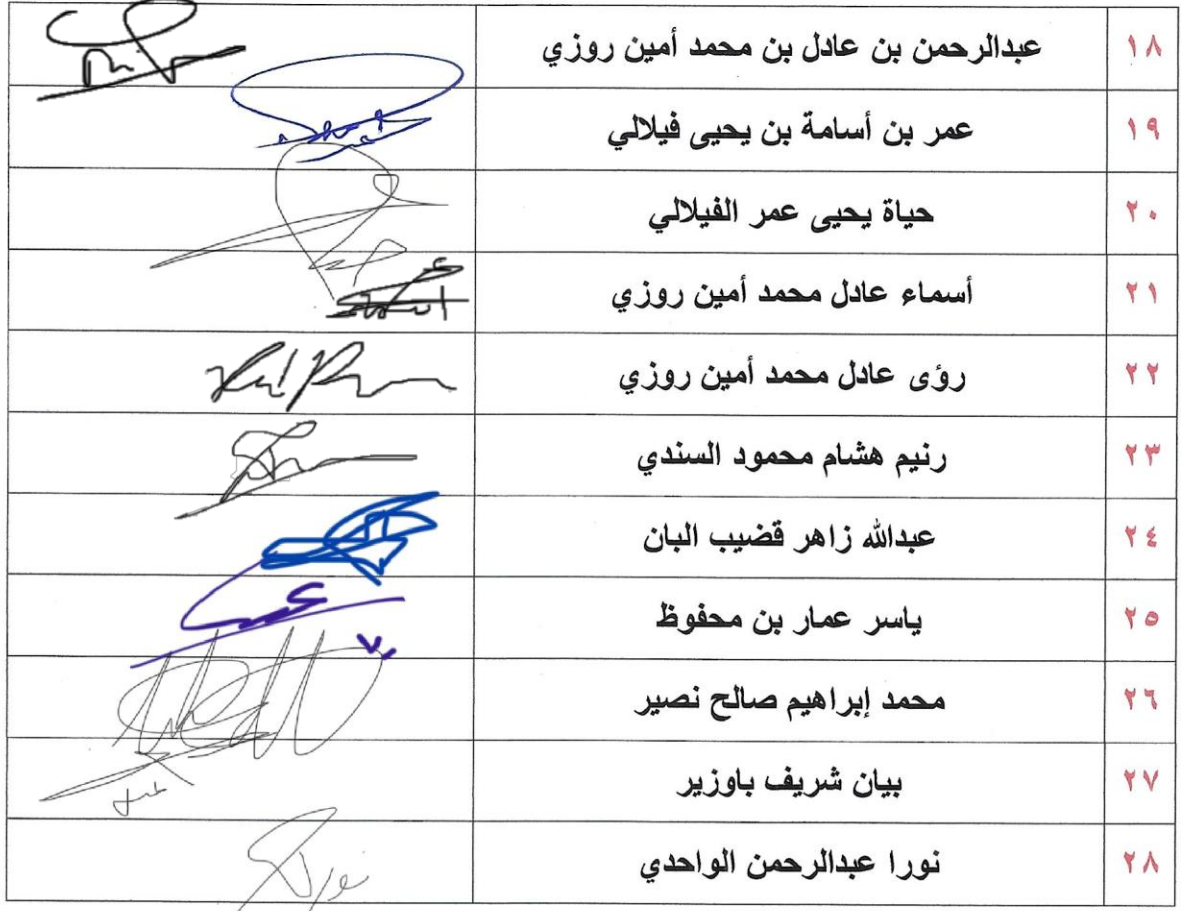 ١٨ عبدالرحمن بن عادل بن محمد أمين روزي
١٩ عمر بن أسامة بن يحيى فيلالي
٢٠ حياة يحيى عمر الفيلالي
٢١ أسماء عادل محمد أمين روزي
٢٢ رؤى عادل محمد أمين روزي
٢٣ رنيم هشام محمود السندي
٢٤ عبدالله زاهر قضيب البان
٢٥ ياسر عمار بن محفوظ
٢٦ محمد إبراهيم صالح نصير
٢٧ بيان شريف باوزير
٢٨ نورا عبدالرحمن الواحدي